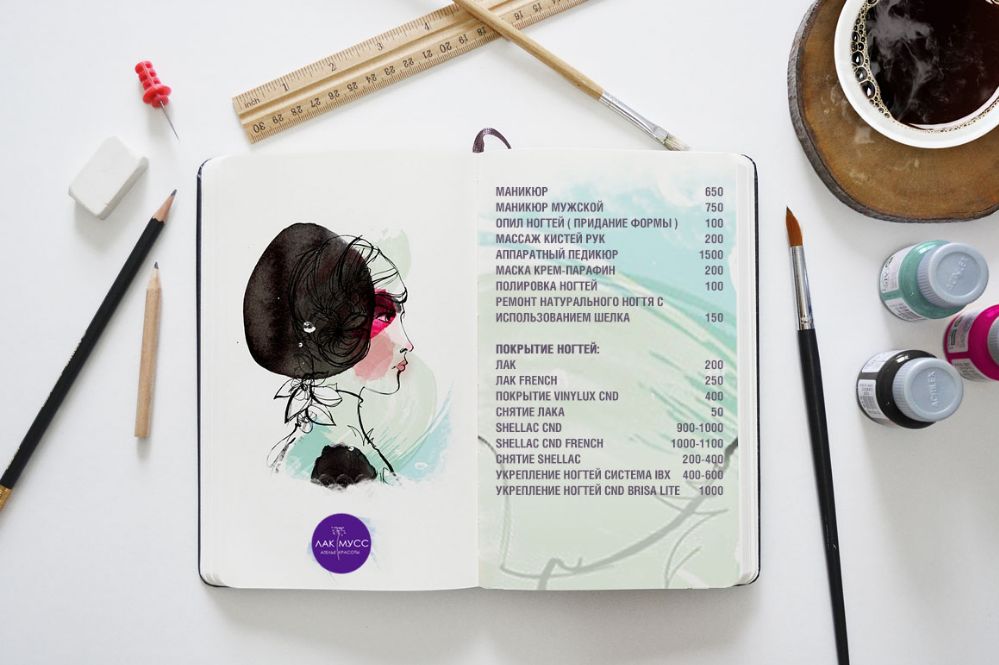 inch 1 2 3 4
30 29 28 27 26 25 24 23 22 21 20
МАНИКЮР 650
МАНИКЮР МУЖСКОЙ 750
ОПИЛ НОГТЕЙ ( ПРИДАНИЕ ФОРМЫ ) 100
МАССАЖ КИСТЕЙ РУК 200
АППАРАТНЫЙ ПЕДИКЮР 1500
МАСКА КРЕМ-ПАРАФИН 200
ПОЛИРОВКА НОГТЕЙ 100
РЕМОНТ НАТУРАЛЬНОГО НОГТЯ С
ИСПОЛЬЗОВАНИЕМ ШЕЛКА 150
ПОКРЫТИЕ НОГТЕЙ:
ЛАК 200
ЛАК FRENCH 250
ПОКРЫТИЕ VINYLUX CND 400
СНЯТИЕ ЛАКА 50
SHELLAC CND 900-1000
SHELLAC CND FRENCH 1000-1100
СНЯТИЕ SHELLAC 200-400
УКРЕПЛЕНИЕ НОГТЕЙ СИСТЕМА IBX 400-600
УКРЕПЛЕНИЕ НОГТЕЙ CND BRISA LITE 1000
ЛАК МУСС
АТЕЛЬЕ КРАСОТЫ